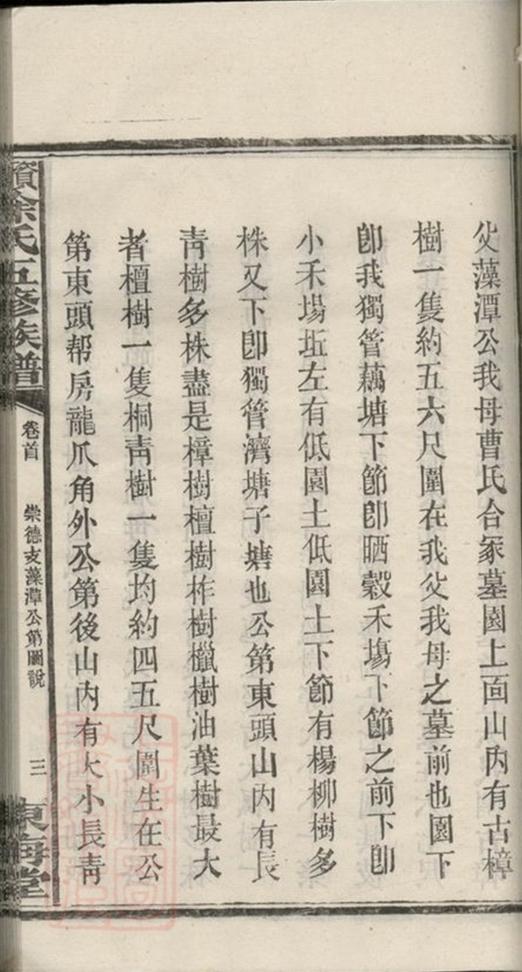 父藻潭公我母曹氏合冢墓園上面山內有古樟
樹一隻約五六尺圍在我父我母之墓前也園下
卽我獨管藕塘下節卽晒穀禾塲下節之前下卽
小禾場坵左有低園土低園土下節有楊柳樹多
株又下卽獨管濟塘子塘也公第東頭山內有長
靑樹多株盡是樟樹檀樹柞樹樹油葉樹最大
者檀樹一隻桐靑樹一隻均約四五尺圍生在公
第東頭帮房龍爪角外公第後山內有大小長靑
資徐氏五修族譜
卷首
崇德支藻潭公第圖說
三
東海堂